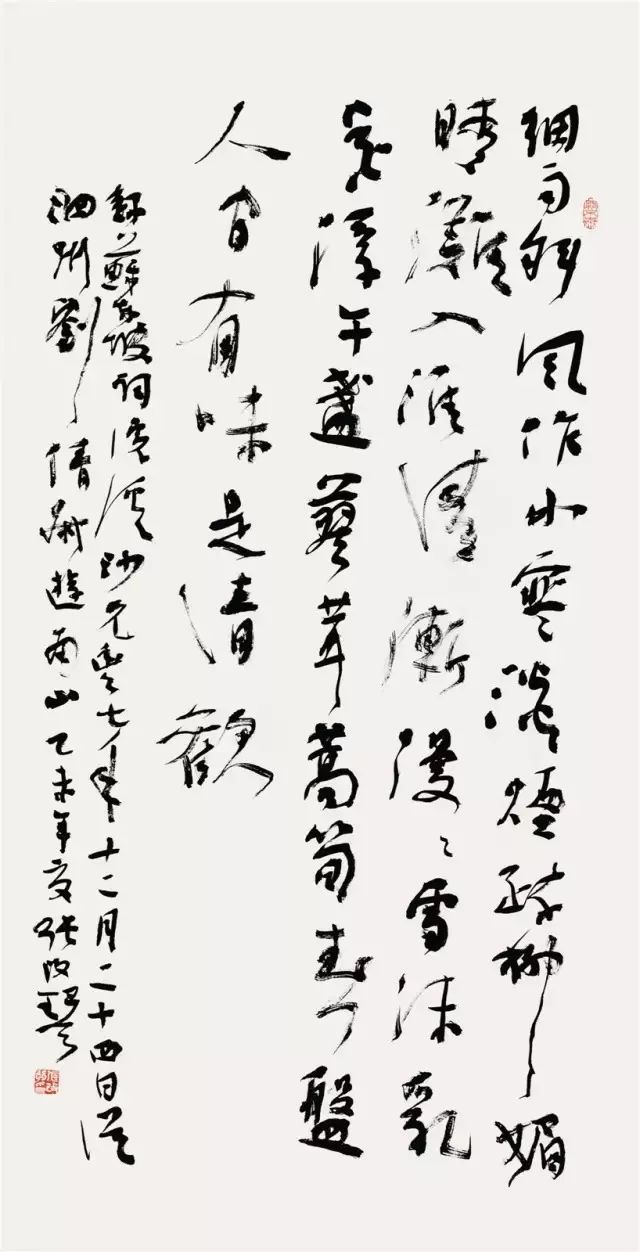 細雨斜風作小寒淡煙疏柳媚
晴灘入淮清漸漫〻雪沫乳
花浮午盞蓼茸蒿筍春盤
人間有味是清歡
蘇東坡詞浣溪沙元豐七年十二月二十四日從
泗州劉倩叔遊南山乙未年夏張改琴